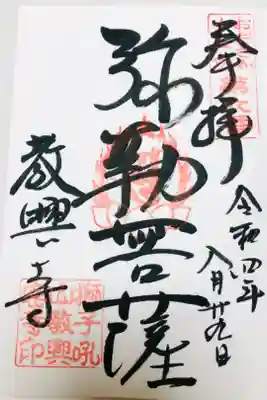 奉拝
令和四年
八月廿九日
弥勒菩薩
教興寺
獅子吼
山教興
寺印